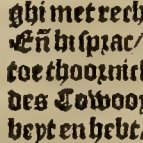 ghi met rech
Eñ bi sprac/
toe thoornich
des Towoor
heyt en hebt/